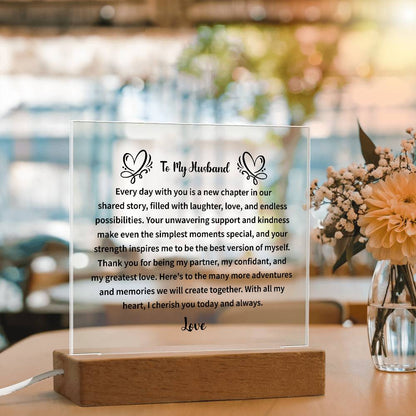 To My Husband
Every day with you is a new chapter in our
shared story, filled with laughter, love, and endless
possibilities. Your unwavering support and kindness
make even the simplest moments special, and your
strength inspires me to be the best version of myself.
Thank you for being my partner, my confidant, and
my greatest love. Here's to the many more adventures
and memories we will create together. With all my
heart, I cherish you today and always.
Love